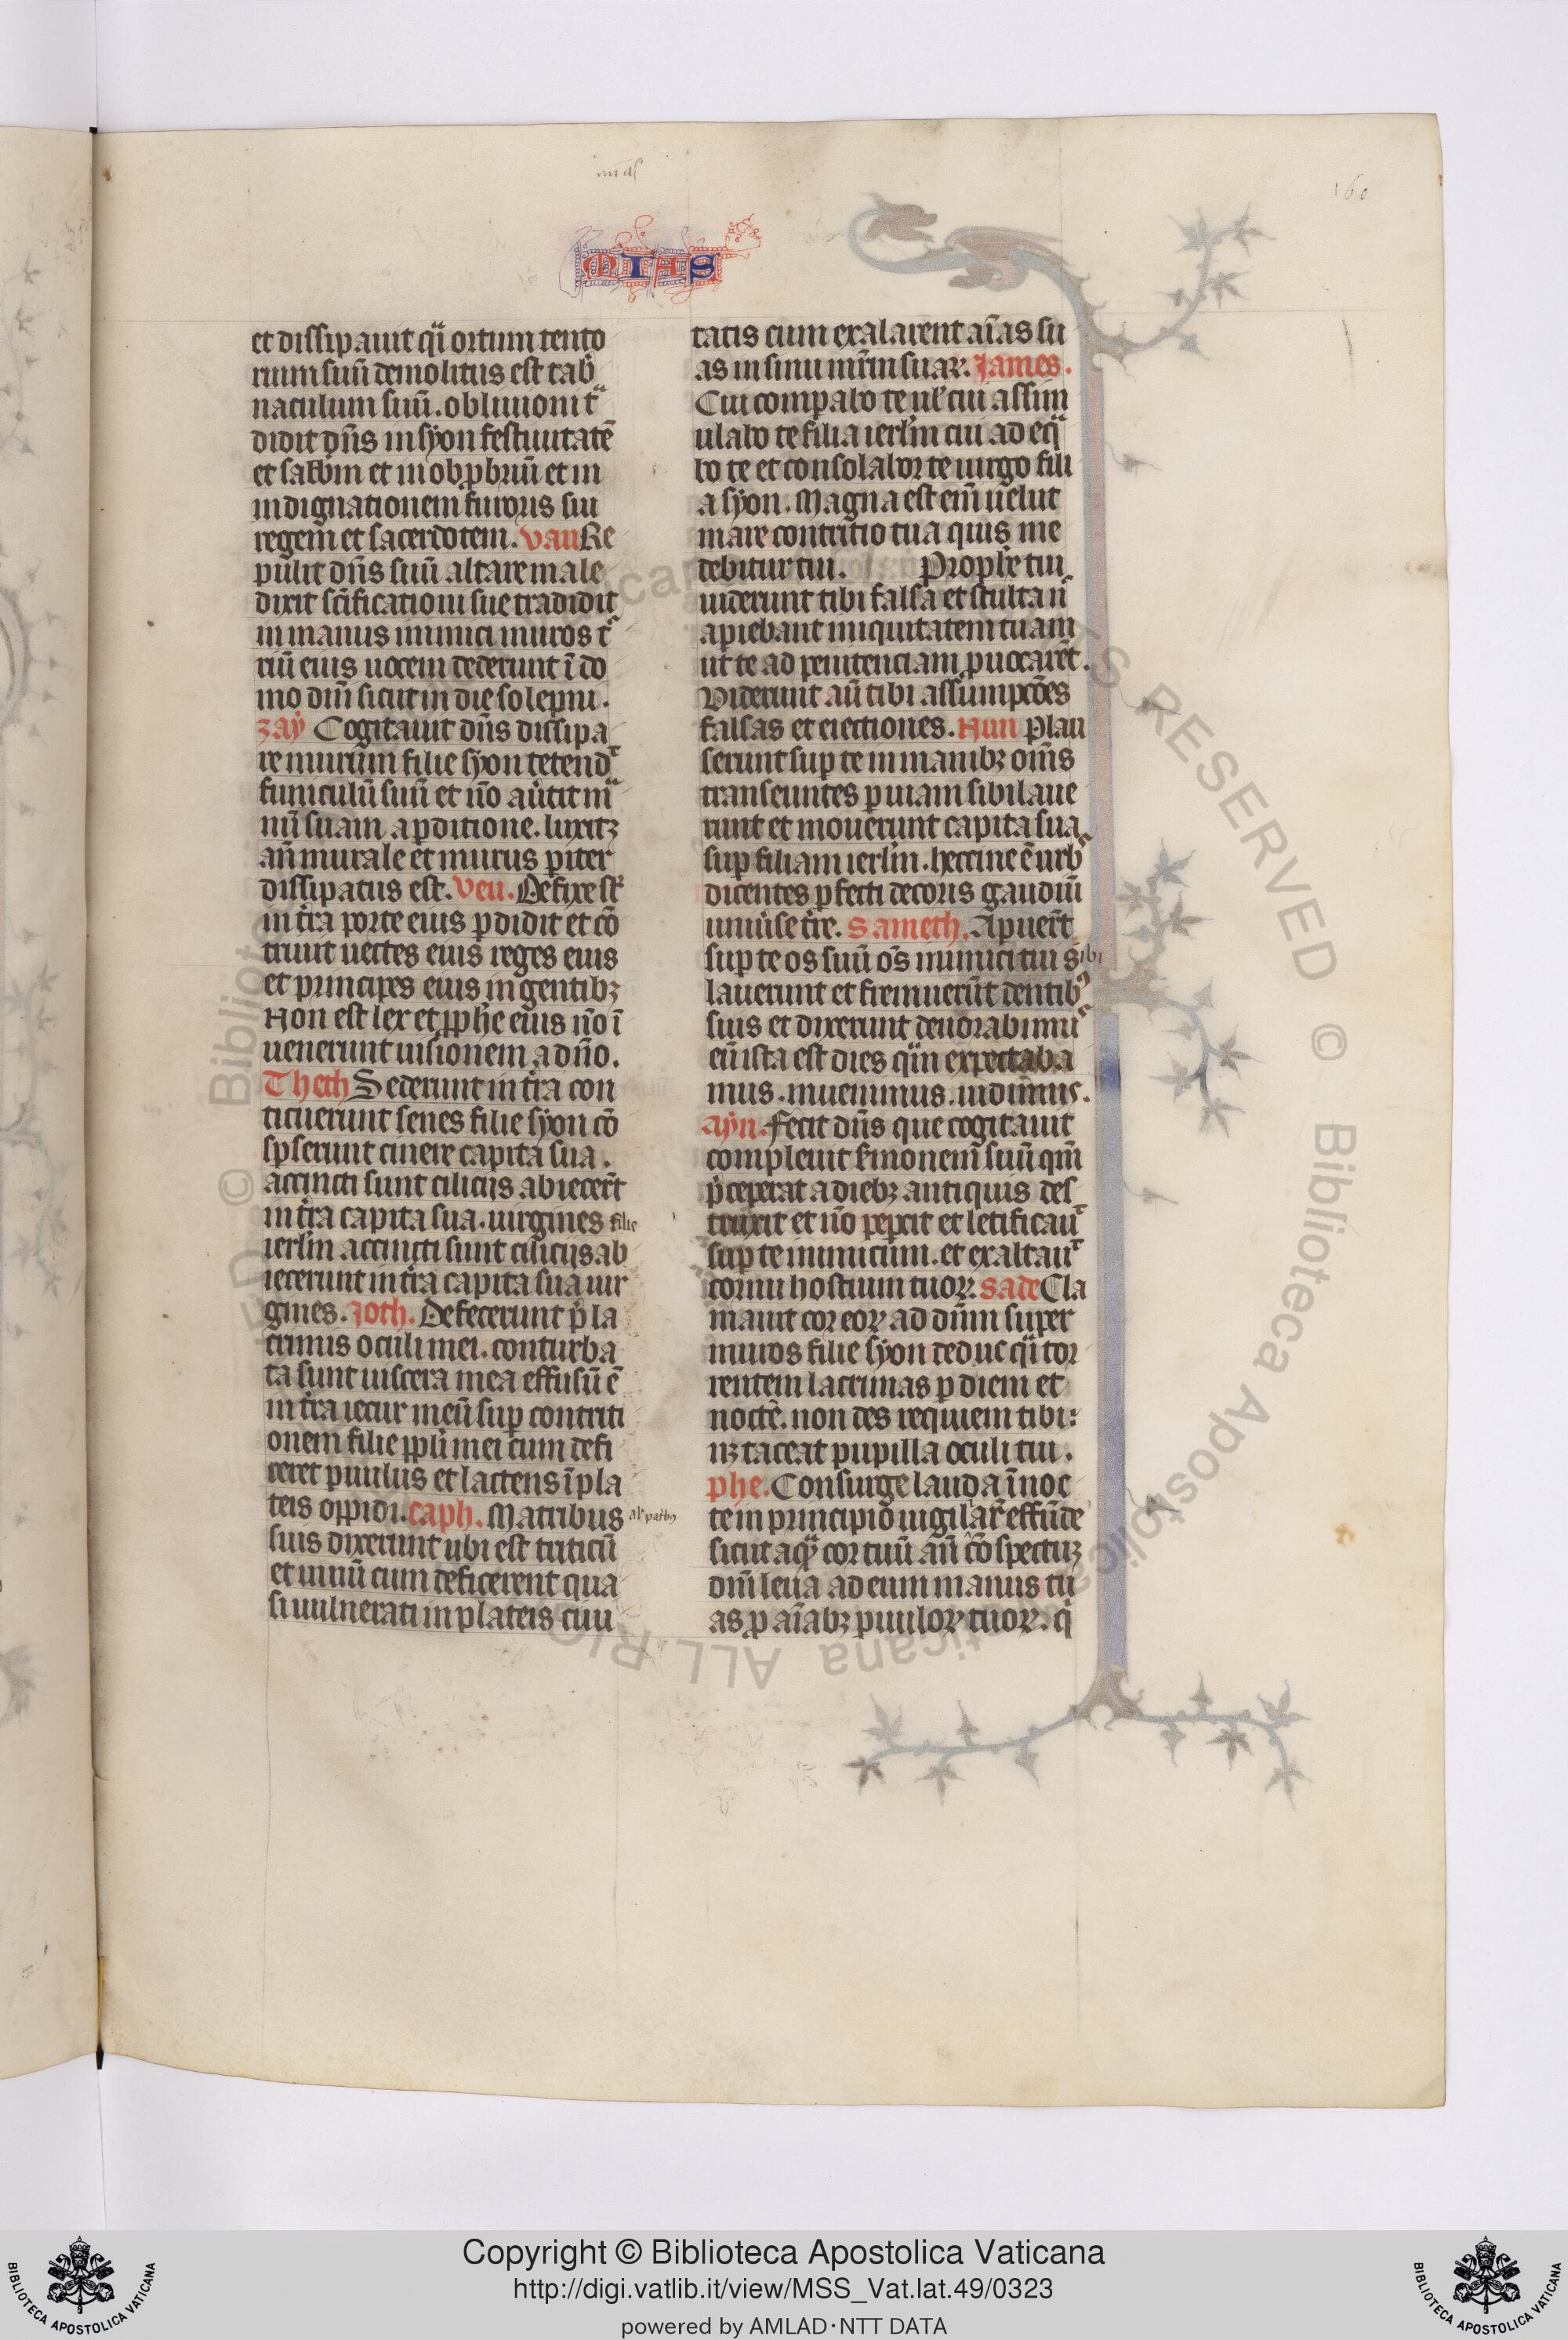 mias
160
MIAS
et dissipauit qͣi ortum tento
rium suū demolitus est tab̉
naculum suū. obliuioni tͣ
didit dn̄s in syon festiuitatē
et sabb̄m et in obp̱briū et in
indignationem furoris sui
regem et sacerdotem. vau Re
pulit dn̄s suū altare male
dixit sc̄ificationi sue tradidit
in manus inimici muros tͨ
riū eius uocem dederunt ī do
mo dn̄i sicut in die solepni.
zay Cogitauit dn̄s dissipa
re murum filie syon tetendͭ
funiculū suū et nō au̓tit mͣ
nū suam a pditione. luxitꝫ
an̄ murale et murus piter
dissipatus est. Veu. Defixe sͭ
in tr̄a porte eius pdidit et cō
triuit uectes eius reges eius
et principes eius in gentibꝫ
Non est lex et ꝓphe eius nō ī
uenerunt uisionem a dn̄o.
Theth Sederunt in tr̄a con
ticuerunt senes filie syon cō
spserunt cinere capita sua.
accincti sunt ciliciis abiecer̄t
in tr̄a capita sua. uirgines filie
ierl̄m accincti sunt ciliciis ab
iecerunt in tr̄a capita sua uir
gines. Joth. Defecerunt p̄ la
crimis oculi mei. conturba
ta sunt uiscera mea effusū ē
in tr̄a iecur meū sup contriti
onem filie ppl̓i mei cum defi
ceret puulus et lactens ī pla
teis oppidi. caph. Matribus al' patbꝫ
suis dixerunt ubi est triticū
et uinū cum deficerent qua
si uulnerati in plateis ciui
tatis cum exalarent aīas su
as in sinu mr̄m suaꝝ. Lames.
Cui compabo te ul̓ cui assim
ilabo te filia ierl̄m cui adeqͣ
bo te et consolabor te uirgo fili
a syon. Magna est em̄ uelut
mare contritio tua quis me
debitur tui. Prophe tui
uiderunt tibi falsa et stulta n̄
apiebant iniquitatem tuam
ut te ad penitenciam puocarēt.
Viderunt aū tibi assumpcōes
falsas et eiectiones. Nun Plau
serunt sup te in manibꝫ om̄s
transeuntes p uiam sibilaue
runt et mouerunt capita sua
sup filiam ierl̄m. heccine ē urbͨ
dicentes pfecti decoris gaudiū
uniu̓se tr̄e. Sameth. Apuer̄t
sup te os suū om̄s inimici tui sibi
lauerunt et fremuerūt dentibꝰ
suis et dixerunt deuorabimuͨ
eū ista est dies qͣm expectaba
mus. inuenimus. uidimus.
Ayn. Fecit dn̄s que cogitauit
compleuit s̓monem suū qm̄
p̓ceperat a diebꝫ antiquis des
truxit et nō pepcit et letificauͭ
sup te inimicum. et exaltauͭ
cornu hostium tuoꝝ. Sade Cla
mauit cor eoꝝ ad dn̄m super
muros filie syon deduc qͣi tor
rentem lacrimas p diem et
noctē. non des requiem tibi:
nꝫ taceat pupilla oculi tui.
phe. Consurge lauda ī noc
te in principio uigilar̄ effūde
sicut aqͣ cor tuū an̄ cōspectuꝫ
dn̄i leua ad eum manus tu
as p aīabꝫ puuloꝝ tuoꝝ. q̓
Copyright © Biblioteca Apostolica Vaticana
http://digi.vatlib.it/view/MSS_Vat.lat.49/0323
powered by AMLAD·NTT DATA